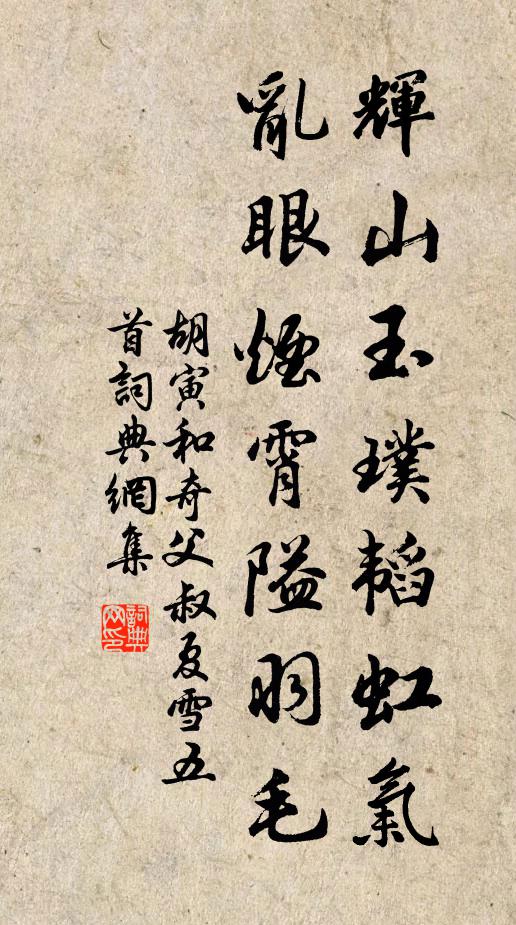 輝山玉璞韜虹氣
亂眼煙霄隘羽毛
胡寅和奇父叔夏雪五
首詞典網集
詞典网印